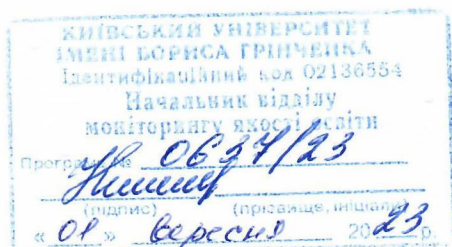 КИЇВСЬКИЙ УНІВЕРСИТЕТ
ІМЕНІ БОРИСА ГРІНЧЕНКА
Ідентифікаційний код 02136554
Начальник відділу
моніторингу якості освіти
Програма № 0637/23
(підпис) (прізвище, ініціали)
« 01 » вересня 2023 р.